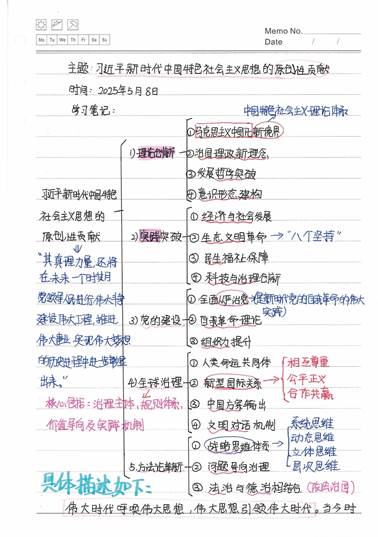 Memo No.
Mo Tu We Th Fr Sa Su
Date / /
主题：习近平新时代中国特色社会主义思想的原创性贡献
时间：2025年5月8日
学习笔记：
中国特色社会主义理论体系
①马克思主义中国化新境界
1)理论创新
②治国理政新理念
③发展哲学突破
④意识形态建构
习近平新时代中国特色
社会主义思想的
原创性贡献
①经济与社会发展
2)实践突破
②生态文明革命→"八个坚持"
③民生福祉保障
④科技与治理创新
"其真理力量，必将
在未来一个时期
党领导人民进行伟大斗争
建设伟大工程，推进
伟大事业，实现伟大梦想
的历史进程中进一步彰显
出来。"
①全面从严治党(在新时代党的自我革命的伟大
实践)
3)党的建设
②自我革命理论
③组织力提升
①人类命运共同体
4)全球治理
②新型国际关系
相互尊重
公平正义
合作共赢
③中国方案输出
④文明对话机制
核心包括：治理主体、规则体系、
价值导向及实践机制
①战略思维体系
系统思维
动态思维
立体思维
层次思维
5.方法论革新
②问题导向治理
③法治与德治相结合(依法治国)
具体描述如下：
伟大时代呼唤伟大思想，伟大思想引领伟大时代。当今时